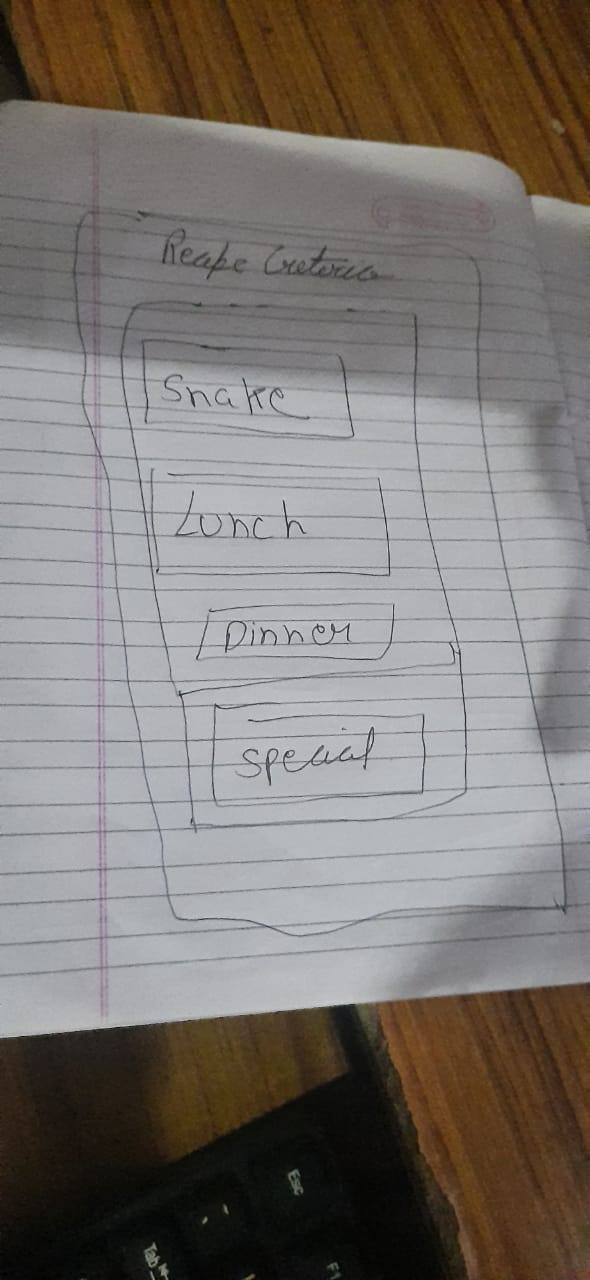 Recipe Creteria
Snake
Lunch
Dinner
special
Esc
Tab
F1